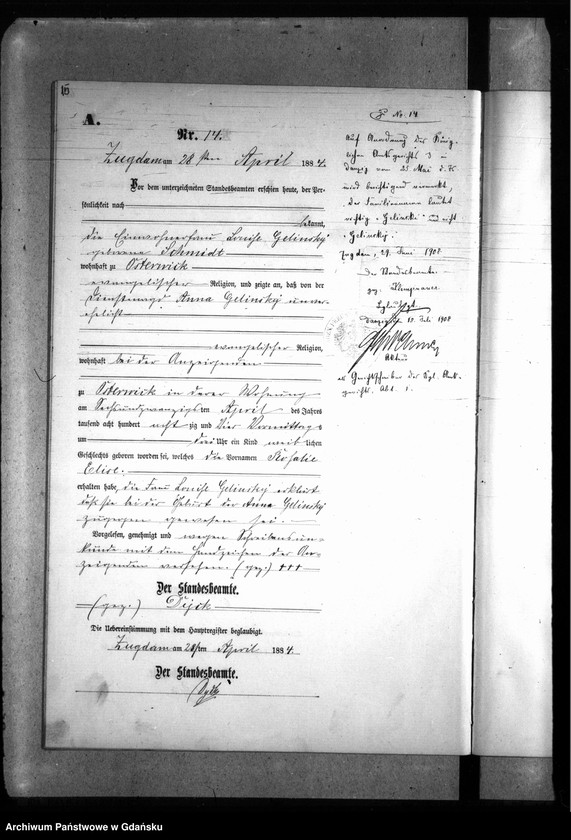 15
A.
Nr. 14.
Zugdam am 28 ten April 1884.
Vor dem unterzeichneten Standesbeamten erschien heute, der Per-
sönlichkeit nach
bekannt,
die Einwohnerfrau Louise Gelinsky
geborene Schmidt
wohnhaft zu Osterwick
evangelischer Religion, und zeigte an, daß von der
Dienstmagd Anna Gelinsky unver-
ehelicht
evangelischer Religion,
wohnhaft bei der Anzeigenden
zu Osterwick in derer Wohnung
am Sechsundzwanzigsten April des Jahres
tausend acht hundert acht zig und Vier Vormittags
um drei Uhr ein Kind weiblichen
Geschlechts geboren worden sei, welches die Vornamen Rosalie
Elise.
erhalten habe, die Frau Louise Gelinsky erklärt
daß sie bei der Geburt der Anna Gelinsky
zugegen gewesen sei.
Vorgelesen, genehmigt und wegen Schreibensun-
kunde mit dem Handzeichen der An-
zeigenden versehen. (gez.) +++
Der Standesbeamte.
(gez.) Dyck
Die Uebereinstimmung mit dem Hauptregister beglaubigt.
Zugdam am 28ten April 1884.
Der Standesbeamte.
Dyck
No 14
Auf Anordnung des König-
lichen Amtsgerichts 3 in
Danzig vom 25 Mai d. Js
wird berichtigend vermerkt,
der Familienname lautet
richtig "Gelinski" und nicht
"Gelinsky".
29. Juni 1908
Der Standesbeamte.
gez.
Beglaubigt.
Danzig, 15. Juli 1908
als Gerichtsschreiber des Kgl. Amts-
gerichts. Abt. 1.
Archiwum Państwowe w Gdańsku